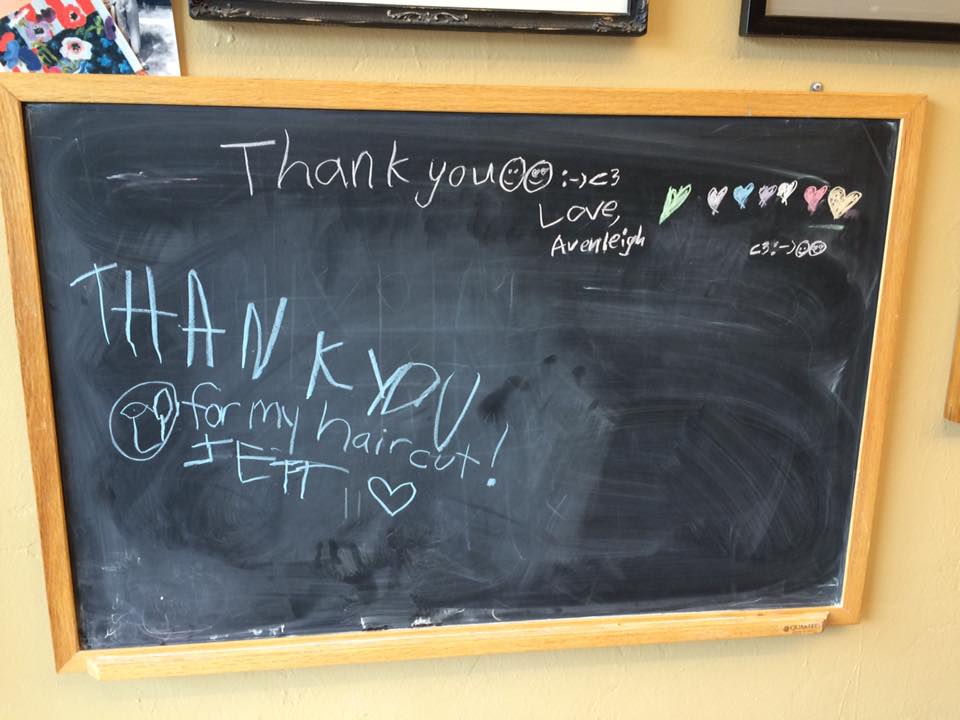 Thank you :-) <3
Love,
Avenleigh
<3 :-)
THANK YOU
for my hair cut!
JETT